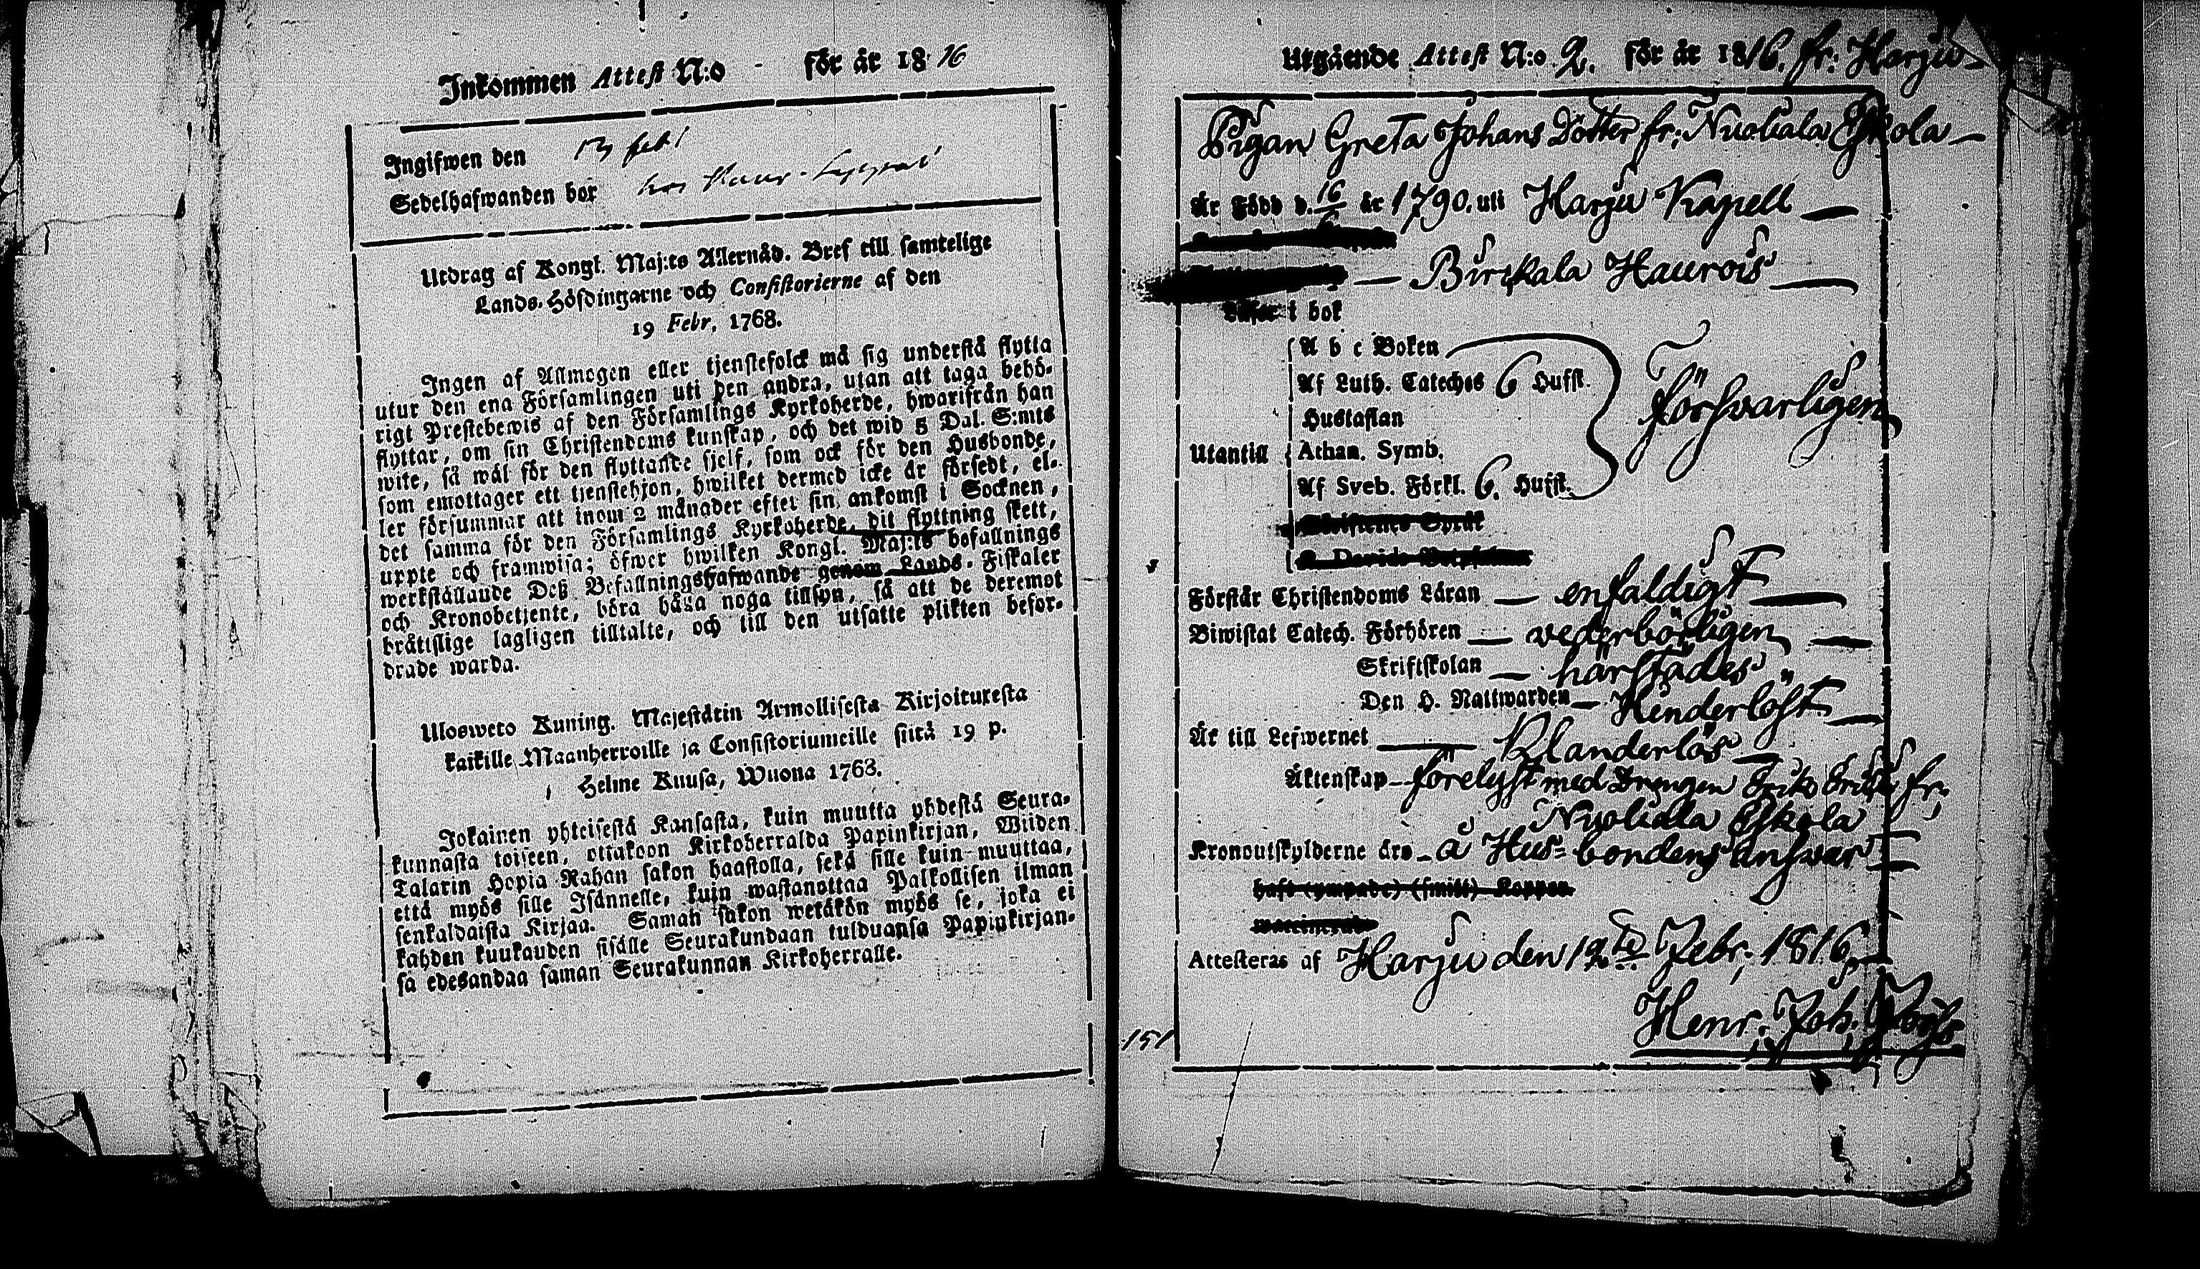 Inkommen Attest N:o - för år 1816
Ingifwen den 13 feb:
Sedelhafwanden bor hos
Utdrag af Kongl. Maj:ts Allernåd. Bref till samtelige
Lands-Höfdingarne och Consistorierne af den
19 Febr. 1768.
Ingen af Allmogen eller tjenstefolck må sig understå flytta
utur den ena Församlingen uti den andra, utan att taga behö-
rigt Prestebewis af den Församlings Kyrkoherde, hwarifrån han
flyttar, om sin Christendoms kunskap, och det wid 5 Dal. S:mts
wite, så wäl för den flyttande sjelf, som ock för den Husbonde,
som emottager ett tjenstehjon, hwilket dermed icke är försedt, el-
ler försummar att inom 2 månader efter sin ankomst i Socknen,
det samma för den Församlings Kyrkoherde, dit flyttning skett,
uppte och framwisa; öfwer hwilken Kongl. Maj:ts befallnings
werkställande Deß Befallningshafwande genom Lands-Fiskaler
och Kronobetjente, böra hålla noga tillsyn, så att de deremot
bråtislige lagligen tilltalte, och till den utsatte plikten befor-
drade warda.
Ulosweto Kuning. Majestätin Armollisesta Kirjoituxesta
kaikille Maanherroille ja Consistoriumeille siitä 19 p.
Helme Kuusa, Wuona 1768.
Jokainen yhteisestä Kansasta, kuin muutta yhdestä Seura-
kunnasta toiseen, ottakoon Kirkoherralda Papinkirjan, Wiiden
Talarin Hopia Rahan sakon haastolla, sekä sille kuin muuttaa,
että myös sille Isännelle, kuin wastanottaa Palkollisen ilman
senkaldaista Kirjaa. Saman sakon wetäkön myös se, joka ei
kahden kuukauden sisälle Seurakundaan tulduansa Papinkirjan-
sa edesandaa saman Seurakunnan Kirkoherralle.
Utgående Attest N:o 2. för år 1816. fr: Harju
Pigan Greta Johans Dotter fr: Nuoliala Eskola
Är Född d. 16/6 år 1790. uti Harju Kapell
Birkala Haurois
i bok
A b c Boken
Af Luth. Cateches 6 Hufst.
Hustaflan
Försvarligen
Utantill Athan. Symb.
Af Sveb. Förkl. 6. Hufst.
Förstår Christendoms Läran enfaldigt
Biwistat Catech. Förhören vederbörligen
Skriftskolan härstädes
Den H. Nattwarden Kenderlöst
Är till Lefwernet Klanderlös
Äktenskap förelyst med Drengen Erik fr:
Nuoliala Eskola
Kronoutskylderne äro å Hus-bondens answar
Attesteras af Harju den 12te Febr: 1816.
Henr: Joh:
151